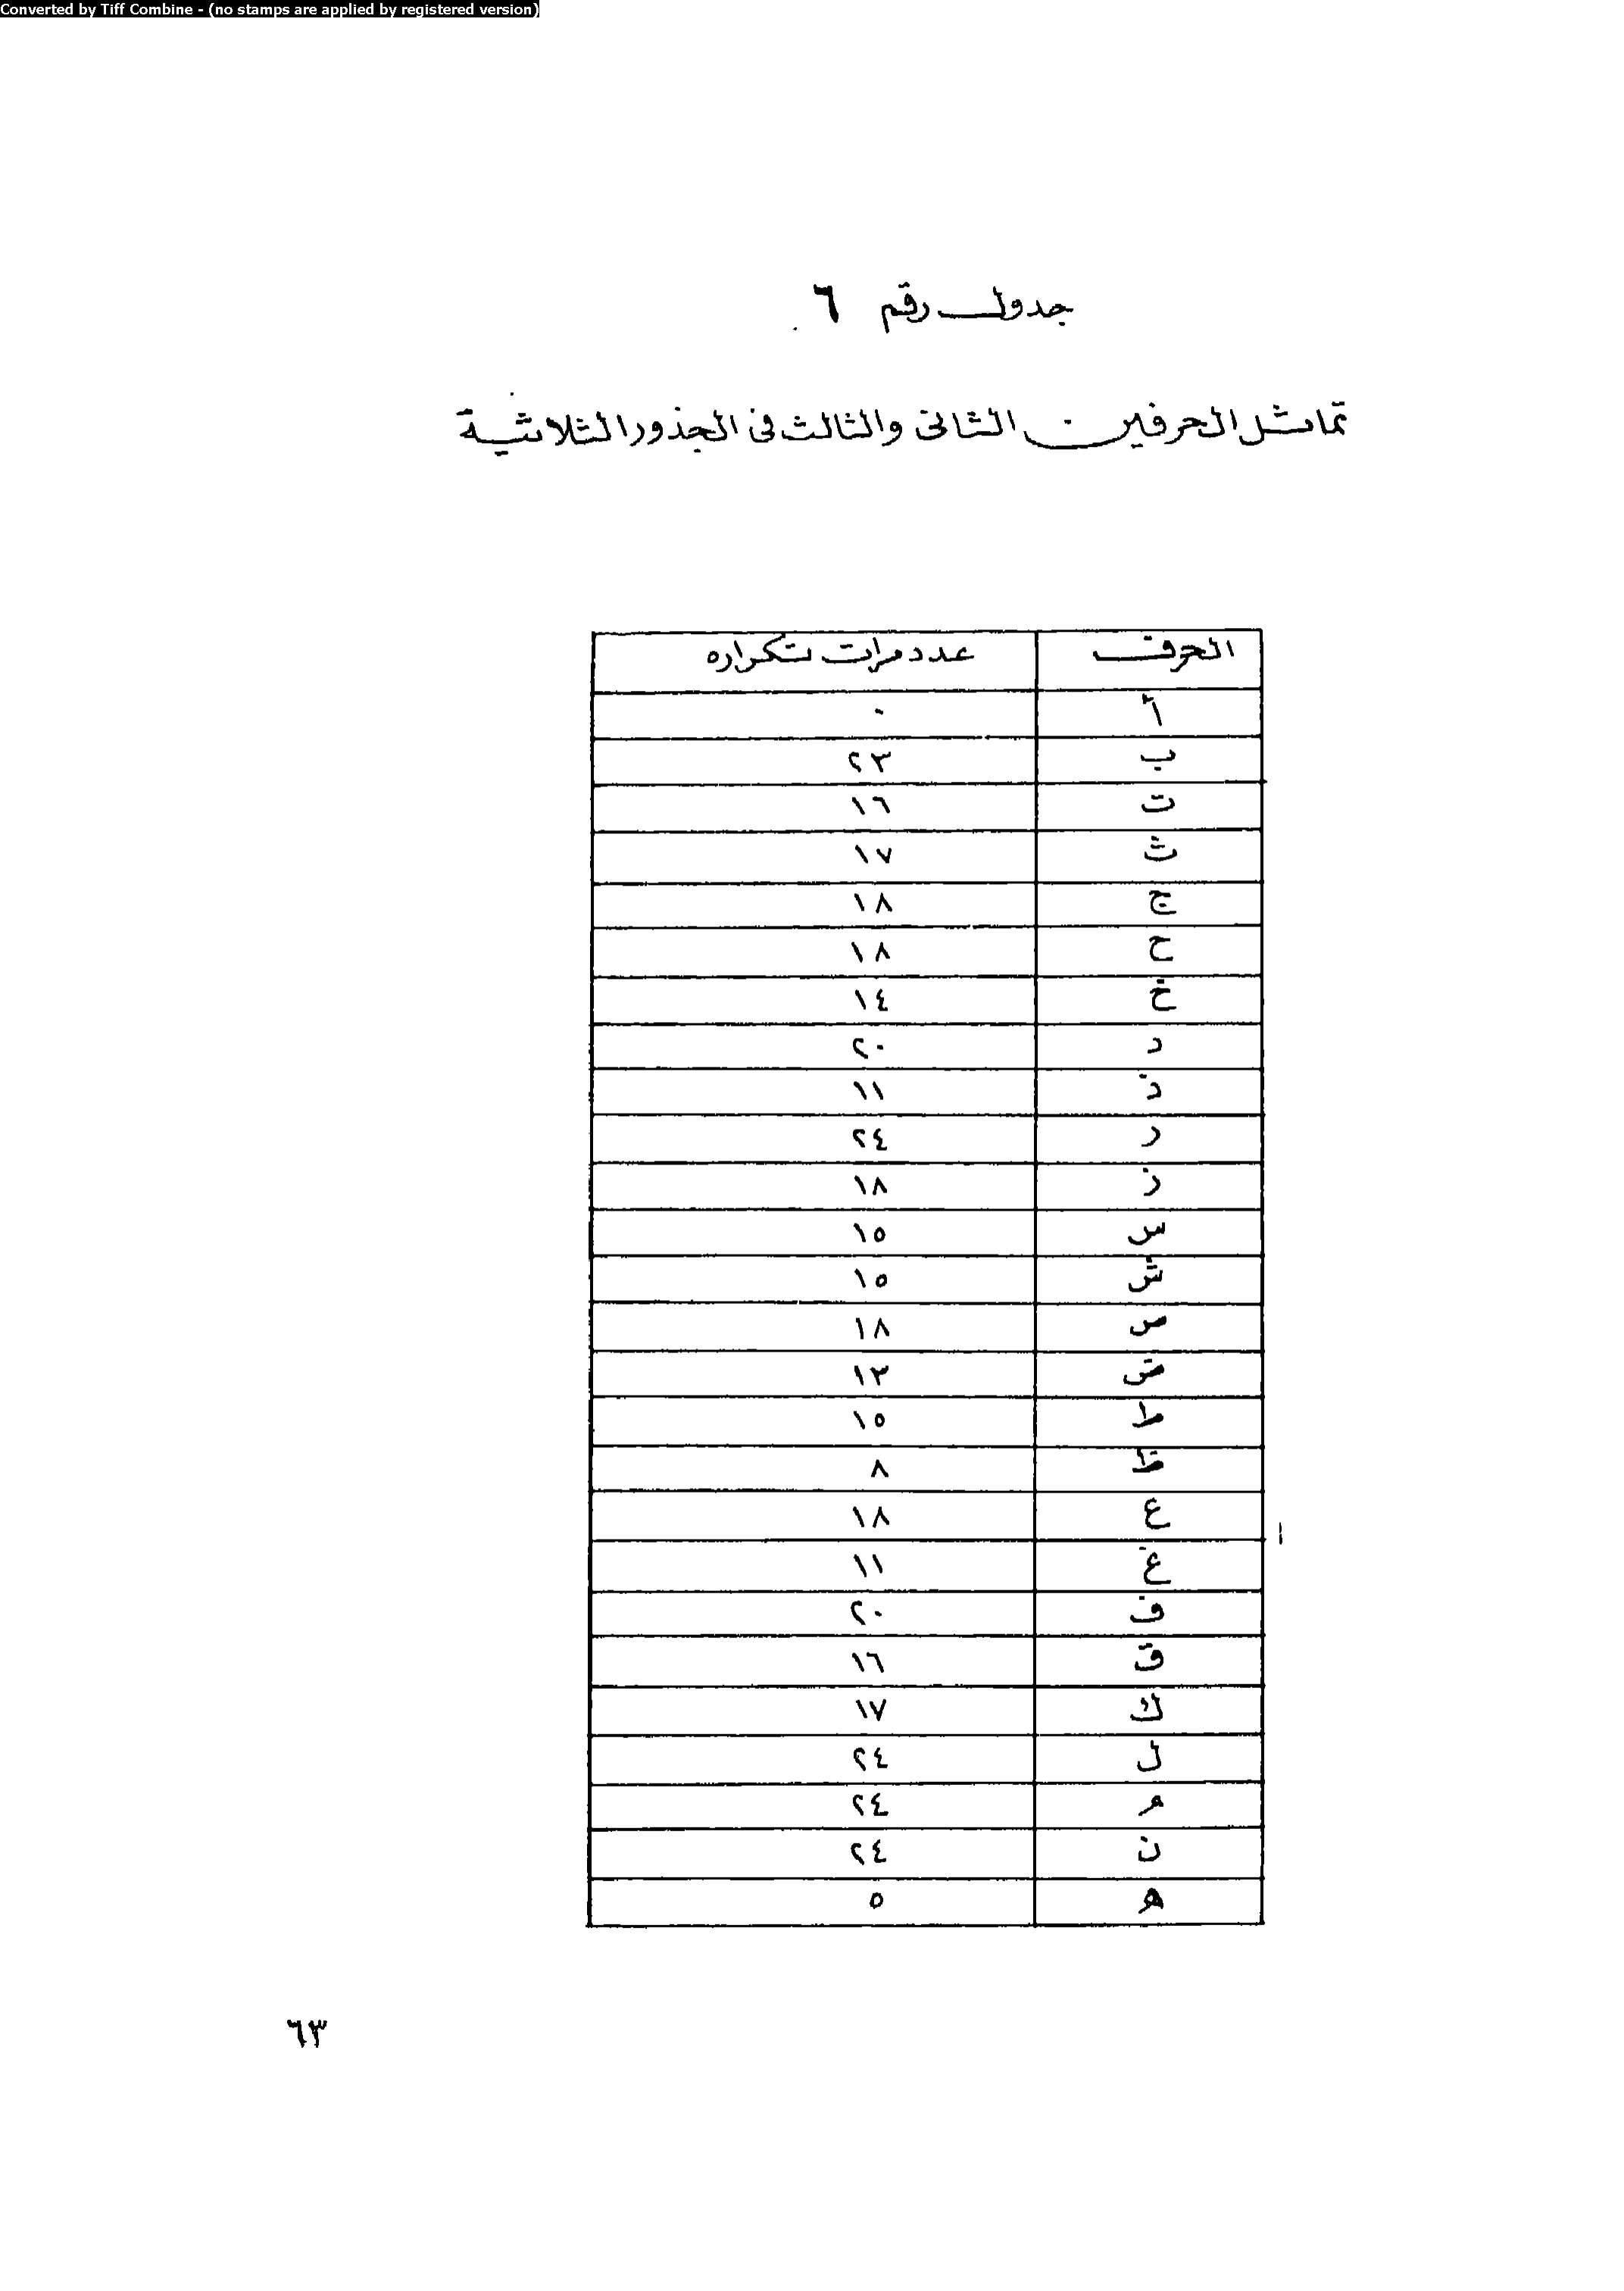 Converted by Tiff Combine - (no stamps are applied by registered version)
جدول رقم ٦
تماثل الحرفين الثانى والثالث فى الجذور الثلاثية
الحرف عدد مرات تكراره
أ ٠
ب ٢٣
ت ١٦
ث ١٧
ج ١٨
ح ١٨
خ ١٤
د ٢٠
ذ ١١
ر ٢٤
ز ١٨
س ١٥
ش ١٥
ص ١٨
ض ١٣
ط ١٥
ظ ٨
ع ١٨
غ ١١
ف ٢٠
ق ١٦
ك ١٧
ل ٢٤
م ٢٤
ن ٢٤
ه ٥
٦٣